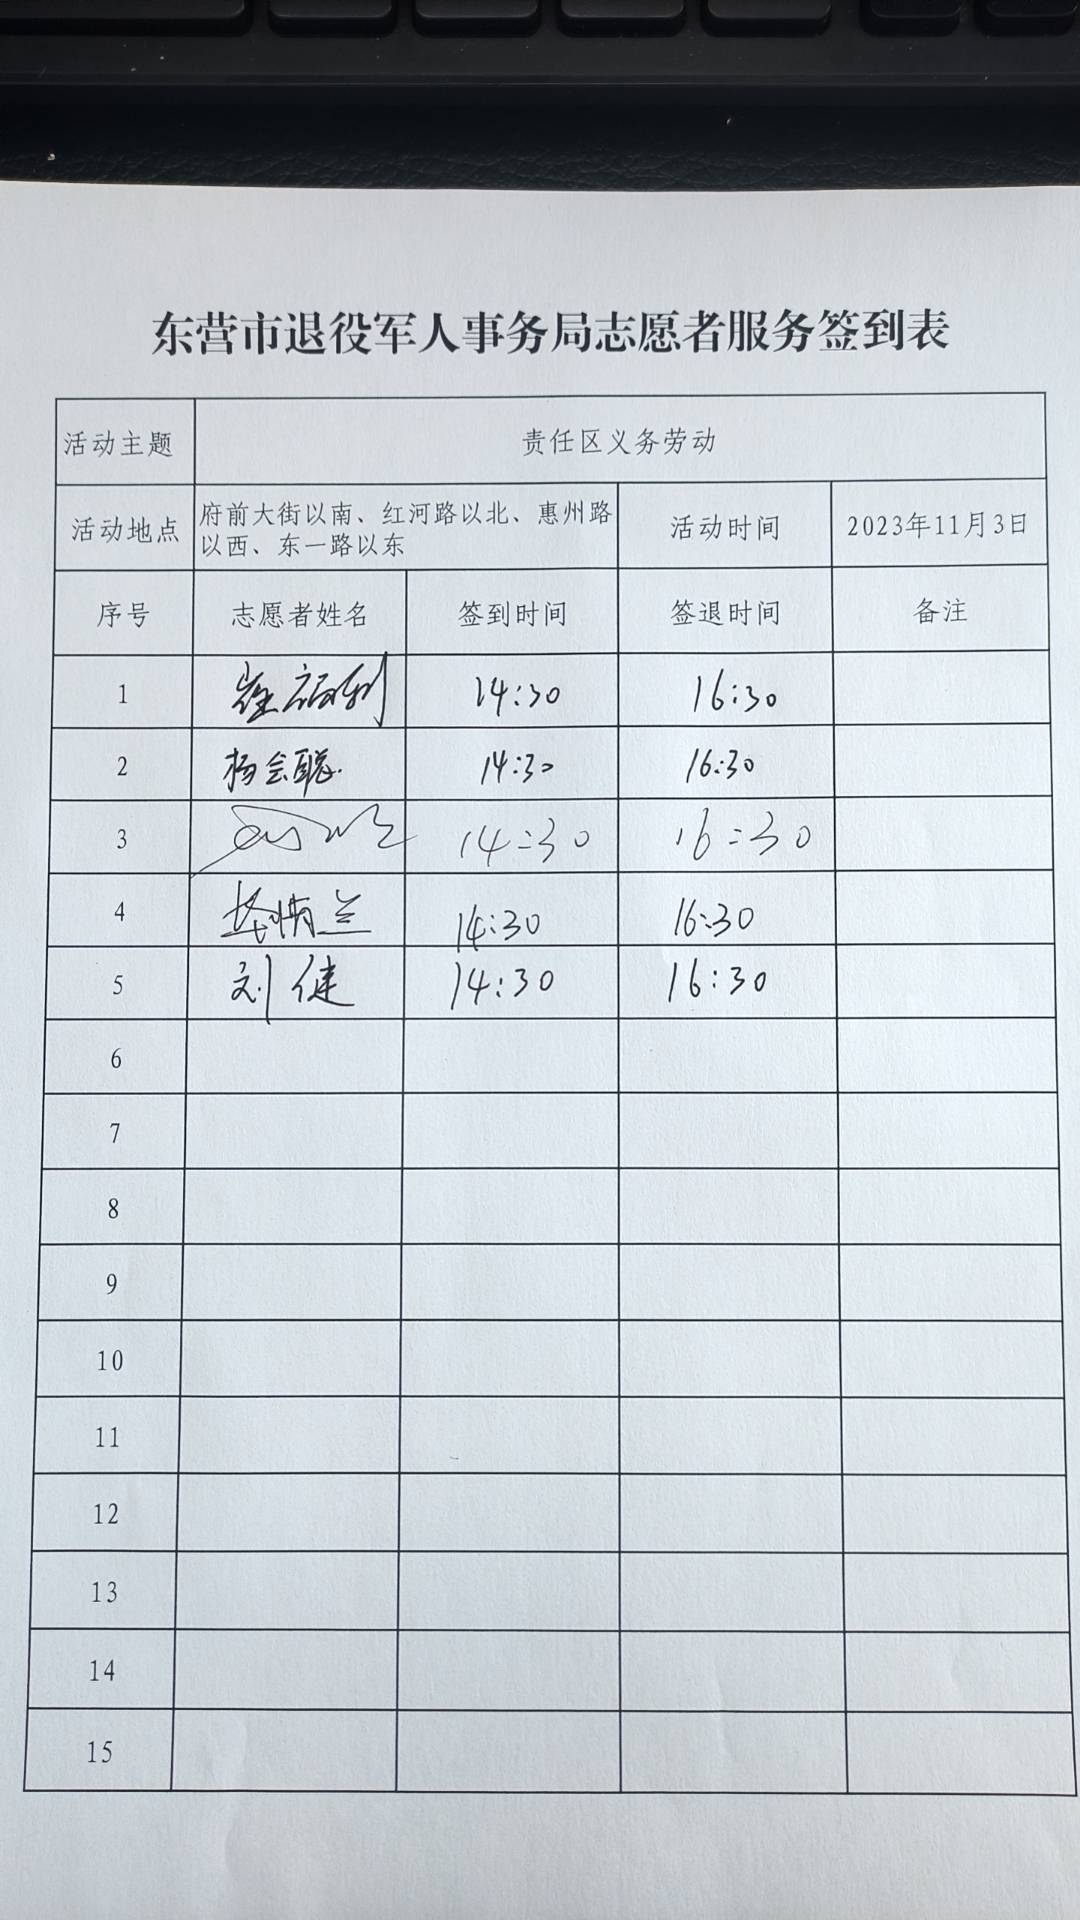 东营市退役军人事务局志愿者服务签到表
活动主题 责任区义务劳动
活动地点 府前大街以南、红河路以北、惠州路
以西、东一路以东 活动时间 2023年11月3日
序号 志愿者姓名 签到时间 签退时间 备注
1 崔福利 14:30 16:30
2 杨会聪 14:30 16:30
3 14:30 16:30
4 14:30 16:30
5 刘健 14:30 16:30
6
7
8
9
10
11
12
13
14
15